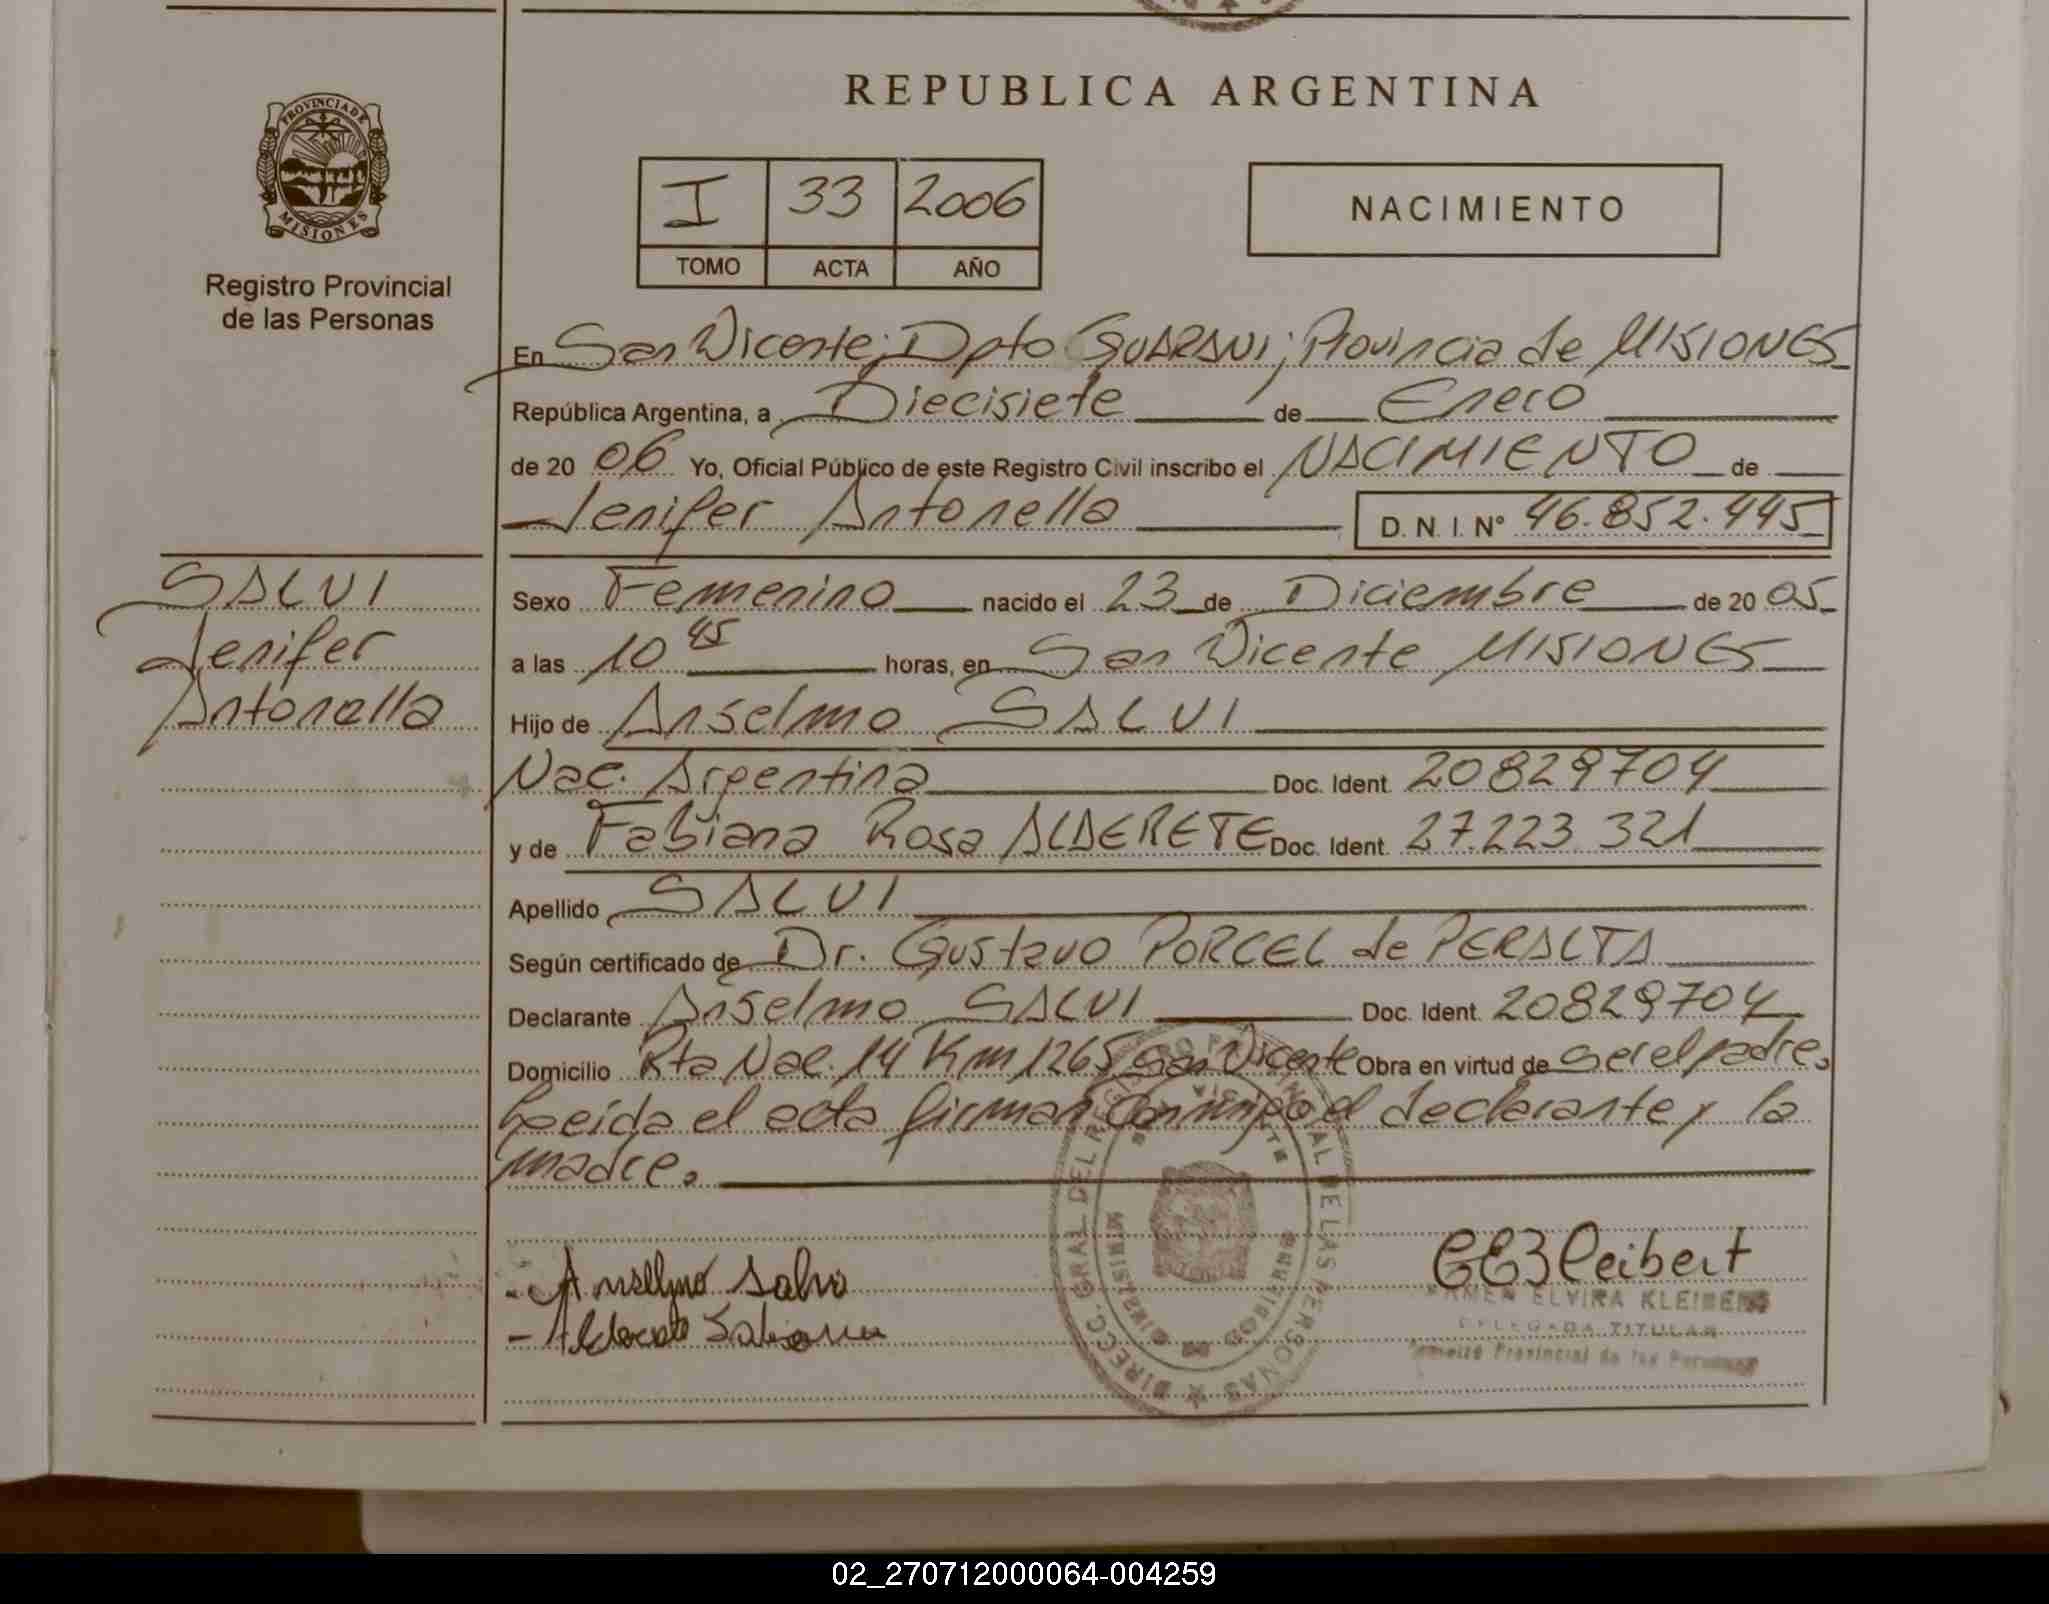 REPUBLICA ARGENTINA
PROVINCIA DE MISIONES
Registro Provincial
de las Personas
I 33 2006
TOMO ACTA AÑO
NACIMIENTO
En San Vicente; Dpto GUARANI; Provincia de MISIONES
República Argentina, a Diecisiete de Enero
de 20 06 Yo, Oficial Público de este Registro Civil inscribo el NACIMIENTO de
Jenifer Antonella D. N. I. N° 46.852.445
SALVI
Jenifer
Antonella
Sexo Femenino nacido el 23 de Diciembre de 20 05
a las 10 45 horas, en San Vicente MISIONES
Hijo de Anselmo SALVI
Nac. Argentina Doc. Ident. 20829704
y de Fabiana Rosa ALDERETE Doc. Ident. 27.223 321
Apellido SALVI
Según certificado de Dr. Gustavo PORCEL de PERALTA
Declarante Anselmo SALVI Doc. Ident. 20829704
Domicilio Rta Nac. 14 Km 1265 San Vicente Obra en virtud de ser el padre.
Leída el acta firman conmigo el declarante y la
madre.
DIRECC. GRAL. DEL REGISTRO PROVINCIAL DE LAS PERSONAS
SAN VICENTE
MISIONES
- Anselmo Salvi
- Alderete Fabiana
ELVIRA
DELEGADA TITULAR
Provincial de las Personas
02_270712000064-004259